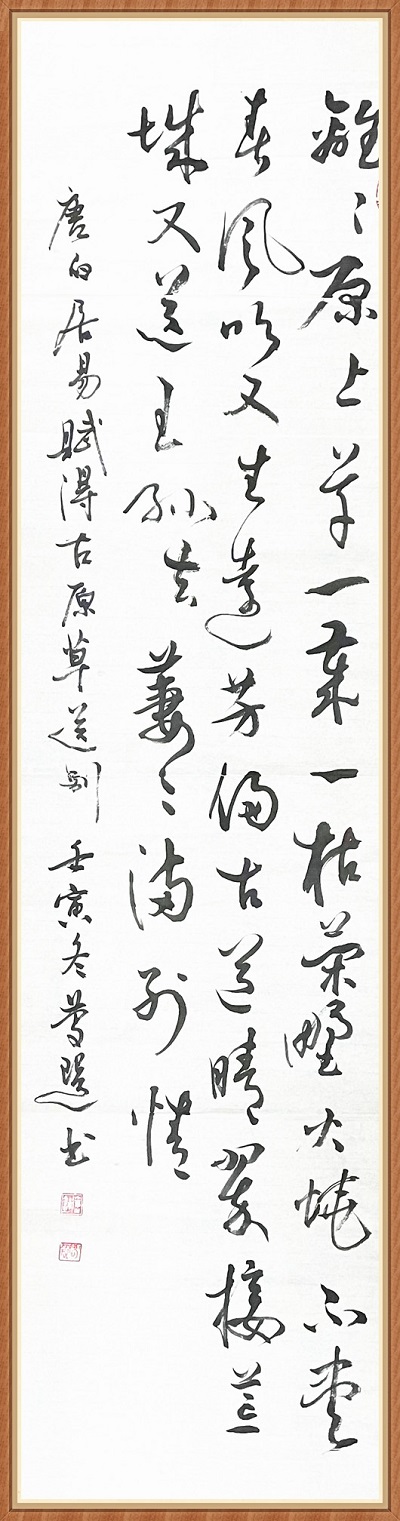 離〻原上草一歲一枯榮野火燒不盡
春風吹又生遠芳侵古道晴翠接荒
城又送王孫去萋〻滿別情
唐白居易賦得古原草送別 壬寅冬 书